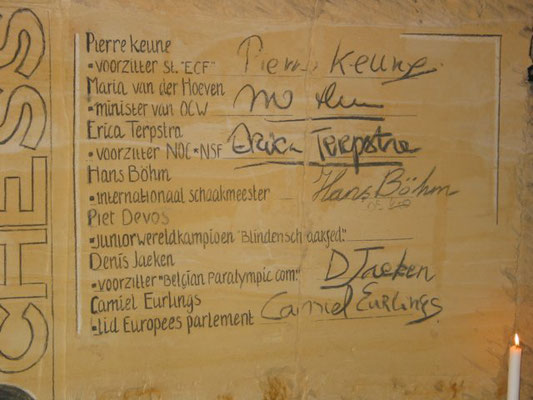 CHESS
Pierre Keune Pierre Keune
•voorzitter St. "ECF"
Maria van der Hoeven
•minister van OCW
Erica Terpstra Erica Terpstra
•voorzitter NOC*NSF
Hans Böhm Hans Böhm
•internationaal schaakmeester
Piet Devos
•Juniorwereldkampioen "Blindenschaaksed."
Denis Jaeken D Jaeken
•voorzitter "Belgian Paralympic com."
Camiel Eurlings Camiel Eurlings
•lid Europees parlement